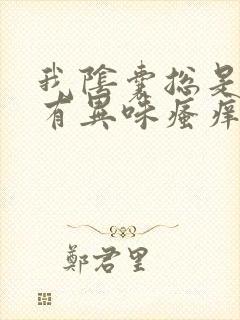 我陰囊總是
有異味瘙痒
鄭君里